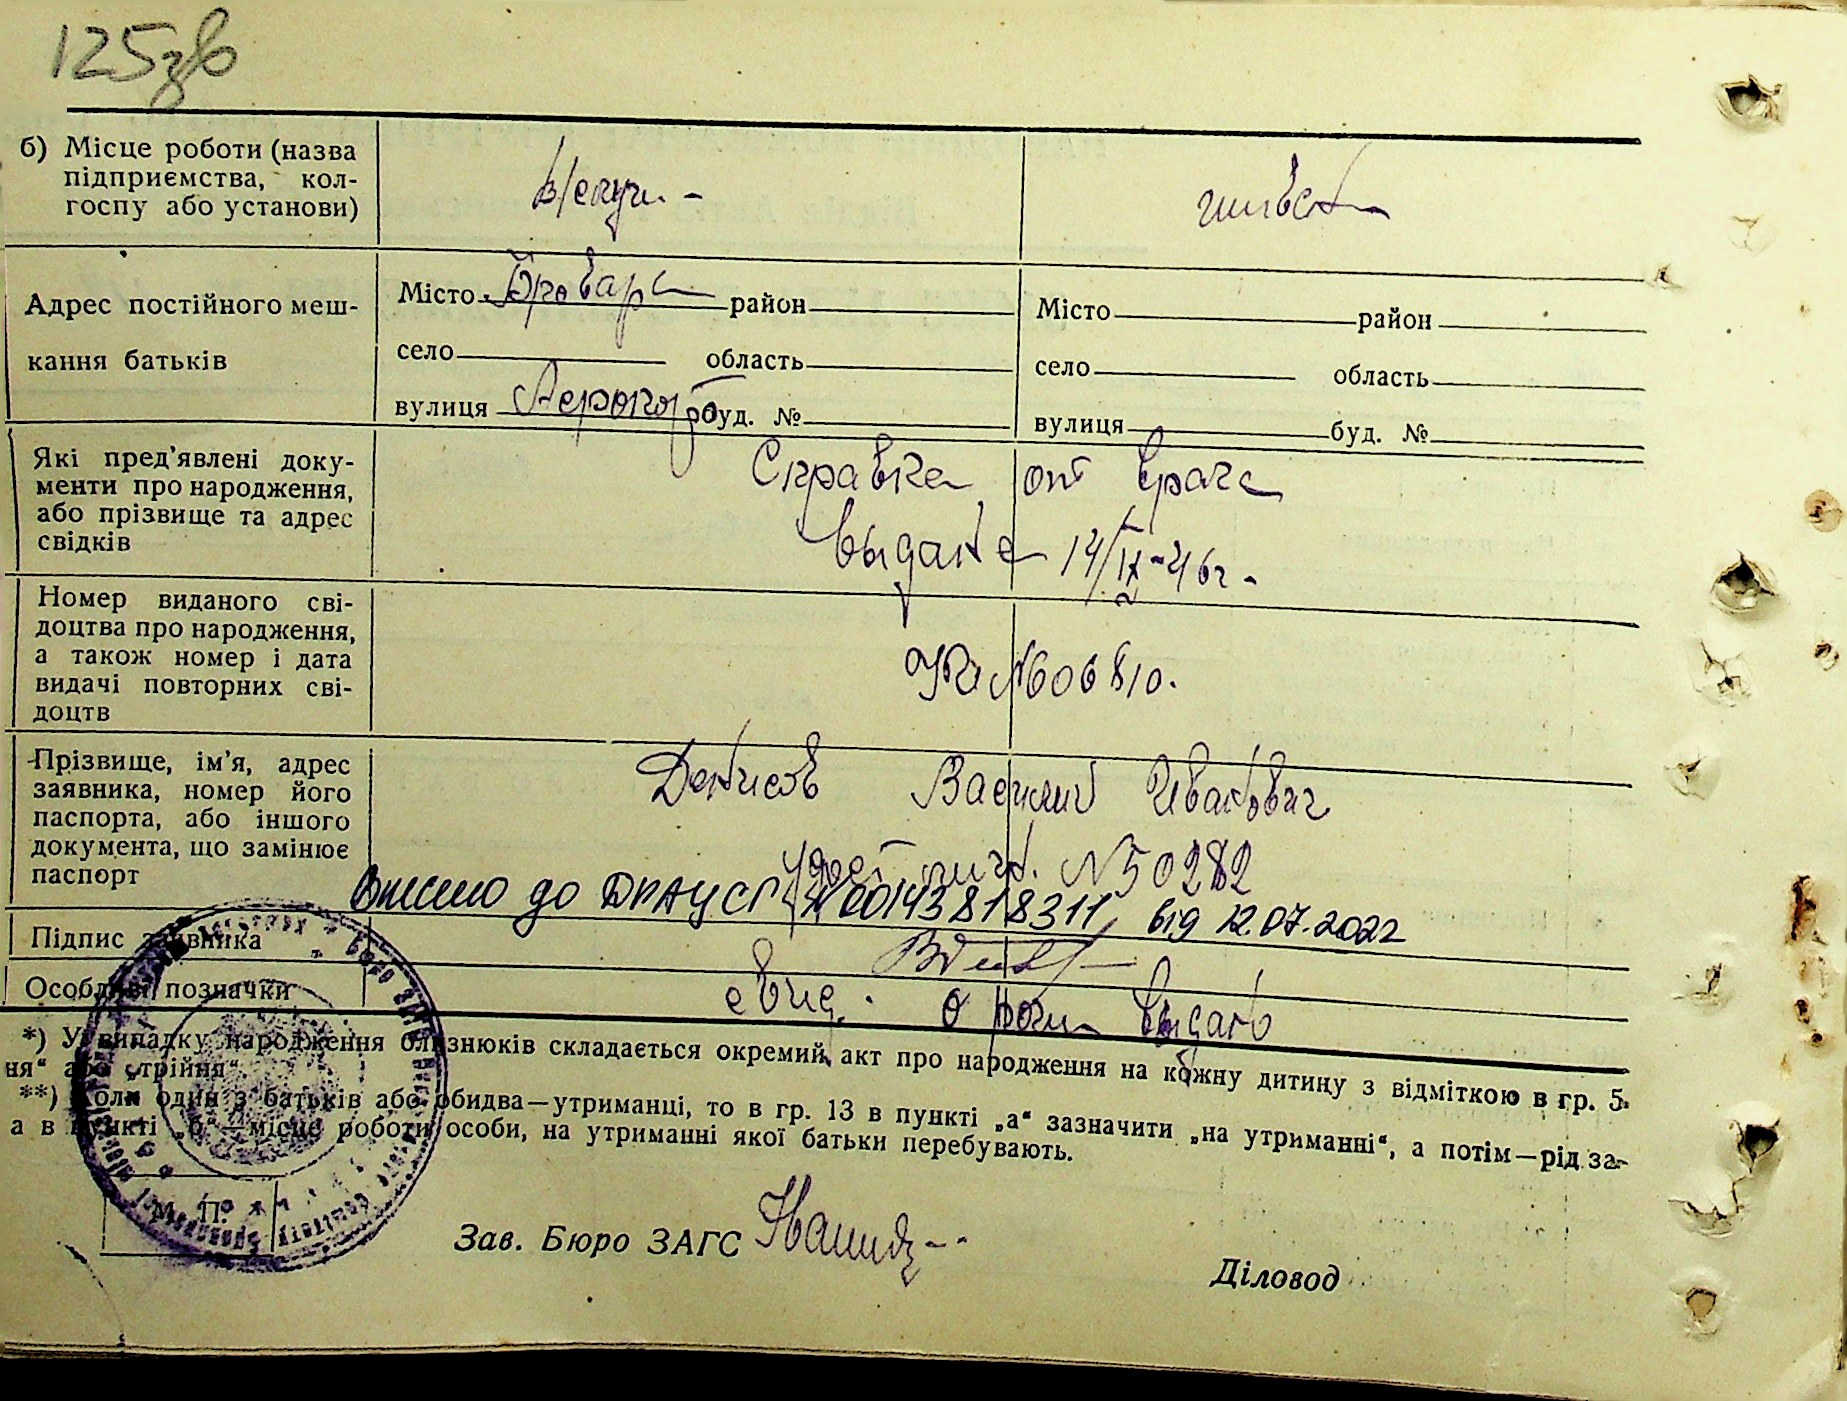 125зв
б) Місце роботи (назва
підприємства, кол-
госпу або установи)
в/служ. -
Адрес постійного меш-
кання батьків
Місто Бровары район
село область
вулиця Аеропорт буд. №
Місто район
село область
вулиця буд. №
Які пред'явлені доку-
менти про народження,
або прізвище та адрес
свідків
Справка от врача
выдана 14/IX-46г.
Номер виданого сві-
доцтва про народження,
а також номер і дата
видачі повторних сві-
доцтв
№606810.
Прізвище, ім'я, адрес
заявника, номер його
паспорта, або іншого
документа, що замінює
паспорт
Денисов Василий Иванович
удост. личн. №50282
Внесено до ДРАЦСГ №00143818311, від 12.07.2022
Підпис заявника
Особливі позначки
свид. о рожд. выдано
*) У випадку народження близнюків складається окремий акт про народження на кожну дитину з відміткою в гр. 5.
ня“ або „трійня“.
**) Коли один з батьків або обидва—утриманці, то в гр. 13 в пункті „а“ зазначити „на утриманні“, а потім—рід за-
а в пункті „б“—місце роботи особи, на утриманні якої батьки перебувають.
М. П.
Зав. Бюро ЗАГС
Діловод